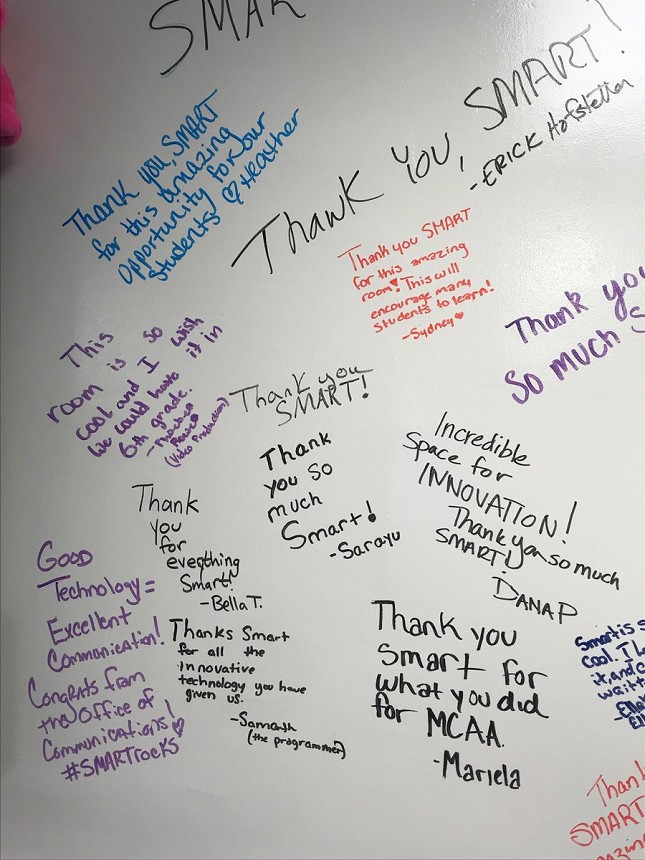 SMAR
Thank you, SMART
for this amazing
opportunity for our
students! ♡ Heather
THANK YOU, SMART!
-ERICK Hofstetter
Thank you SMART
for this amazing
room! This will
encourage many
students to learn!
-Sydney♥
Thank you
So much S
This
room is so
cool and I wish
we could have it in
6th grade.
-Phoebe
Rowe
(Video Production)
Thank you
SMART!
Thank
you so
much
Smart!
-Sarayu
Incredible
Space for
INNOVATION!
Thank you so much
SMART!
DANA P
Thank
you
for
everything
Smart!
-Bella T.
Good
Technology=
Excellent
Communication!
Congrats from
the Office of
Communications!
#SMARTrocks
Thanks Smart
for all the
innovative
technology you have
given us.
-Samarth
(the programmer)
Thank you
Smart for
what you did
for MCAA.
-Mariela
Smart is s
cool. I l
it, and c
wait t
-Ella
Thank
SMART
amazin